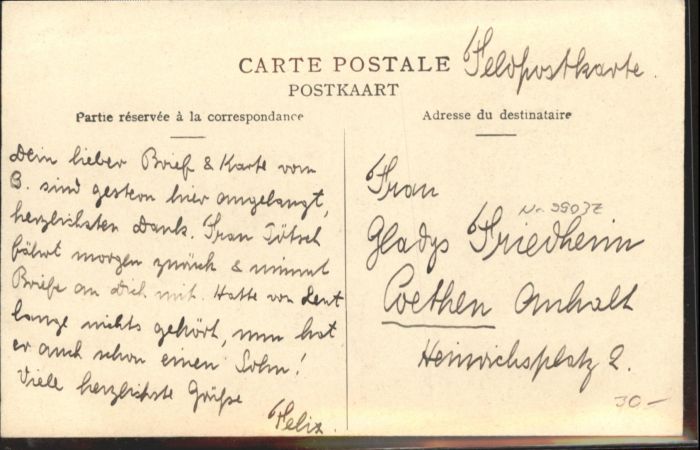 CARTE POSTALE
POSTKAART
Feldpostkarte.
Partie réservée à la correspondance
Adresse du destinataire
Dein lieber Brief & Karte vom
8. sind gestern hier angelangt,
herzlichsten Dank. Frau Tötsch
fährt morgen zurück & nimmt
Briefe an Dich mit. Hatte von
lange nichts gehört, nun hat
er auch schon einen Sohn!
Viele herzlichste Grüße
Felix.
Frau
Gladys Friedheim
Coethen Anhalt
Heinrichsplatz 2.
30-